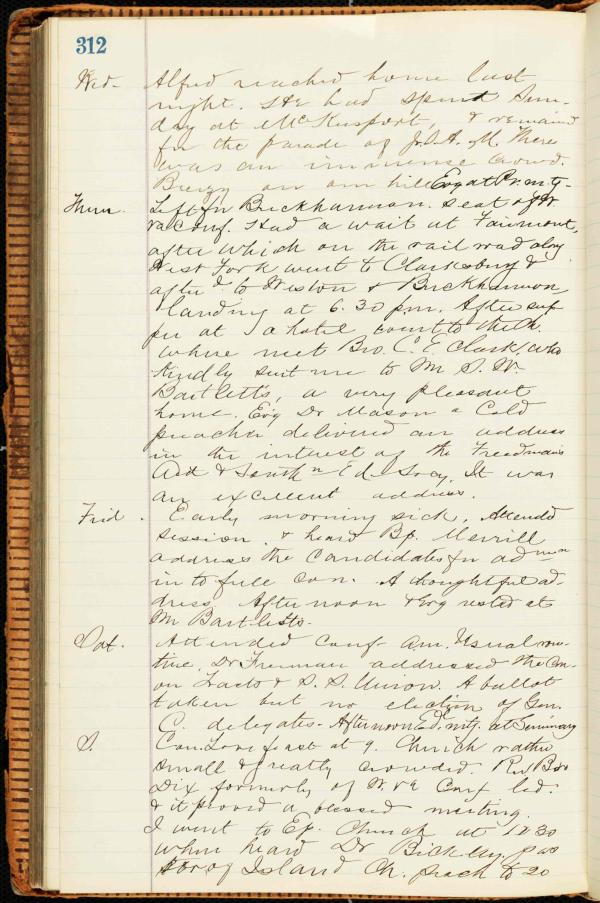 312
Wed- Alfred reached home last
night. He had spent Sun-
day at McKeesport, & remained
for the parade of Jr. O. A. M. There
was an immense crowd.
Breezy on our hill. Evg at Pr. mtg-
Thurs. Left for Buckhannon. Seat of W
Va Conf. Had a wait at Fairmont,
after which on the rail road along
West Fork went to Clarksburg &
afterd to Weston & Buckhannon
landing at 6.30 p.m. After sup
per at a hotel went to Chch.
where met Bro. C. E. Clark, who
kindly sent me to Mr S. W.
Bartlett's, a very pleasant
home. Evg Dr Mason a Cold
preacher delivered an address
in the interest of the Freedmans
Aid & Southn Ed. Socy. It was
an excellent address.
Frid. Early morning sick. Attended
session. & heard Bp. Merrill
address the Candidates for admn
in to full con. A thoughtful ad-
dress. Afternoon & Evg rested at
Mr Bartletts.
Sat. Attended Conf- a.m. Usual rou-
tine. Dr Freeman addressed the Con-
on Tracts & S. S. Union. A ballot
taken but no election of Gen.
C. delegates- Afternoon Ed. mtg. at Seminary
S. Con. Lovefeast at 9. Church rather
small & greatly crowded. Rev Bro
Dix formerly of W. Va Conf led.
& it proved a blessed meeting.
I went to Ep. Church at 10 30
where heard Dr Bickley, pas
tor of Island Ch. preach to 20